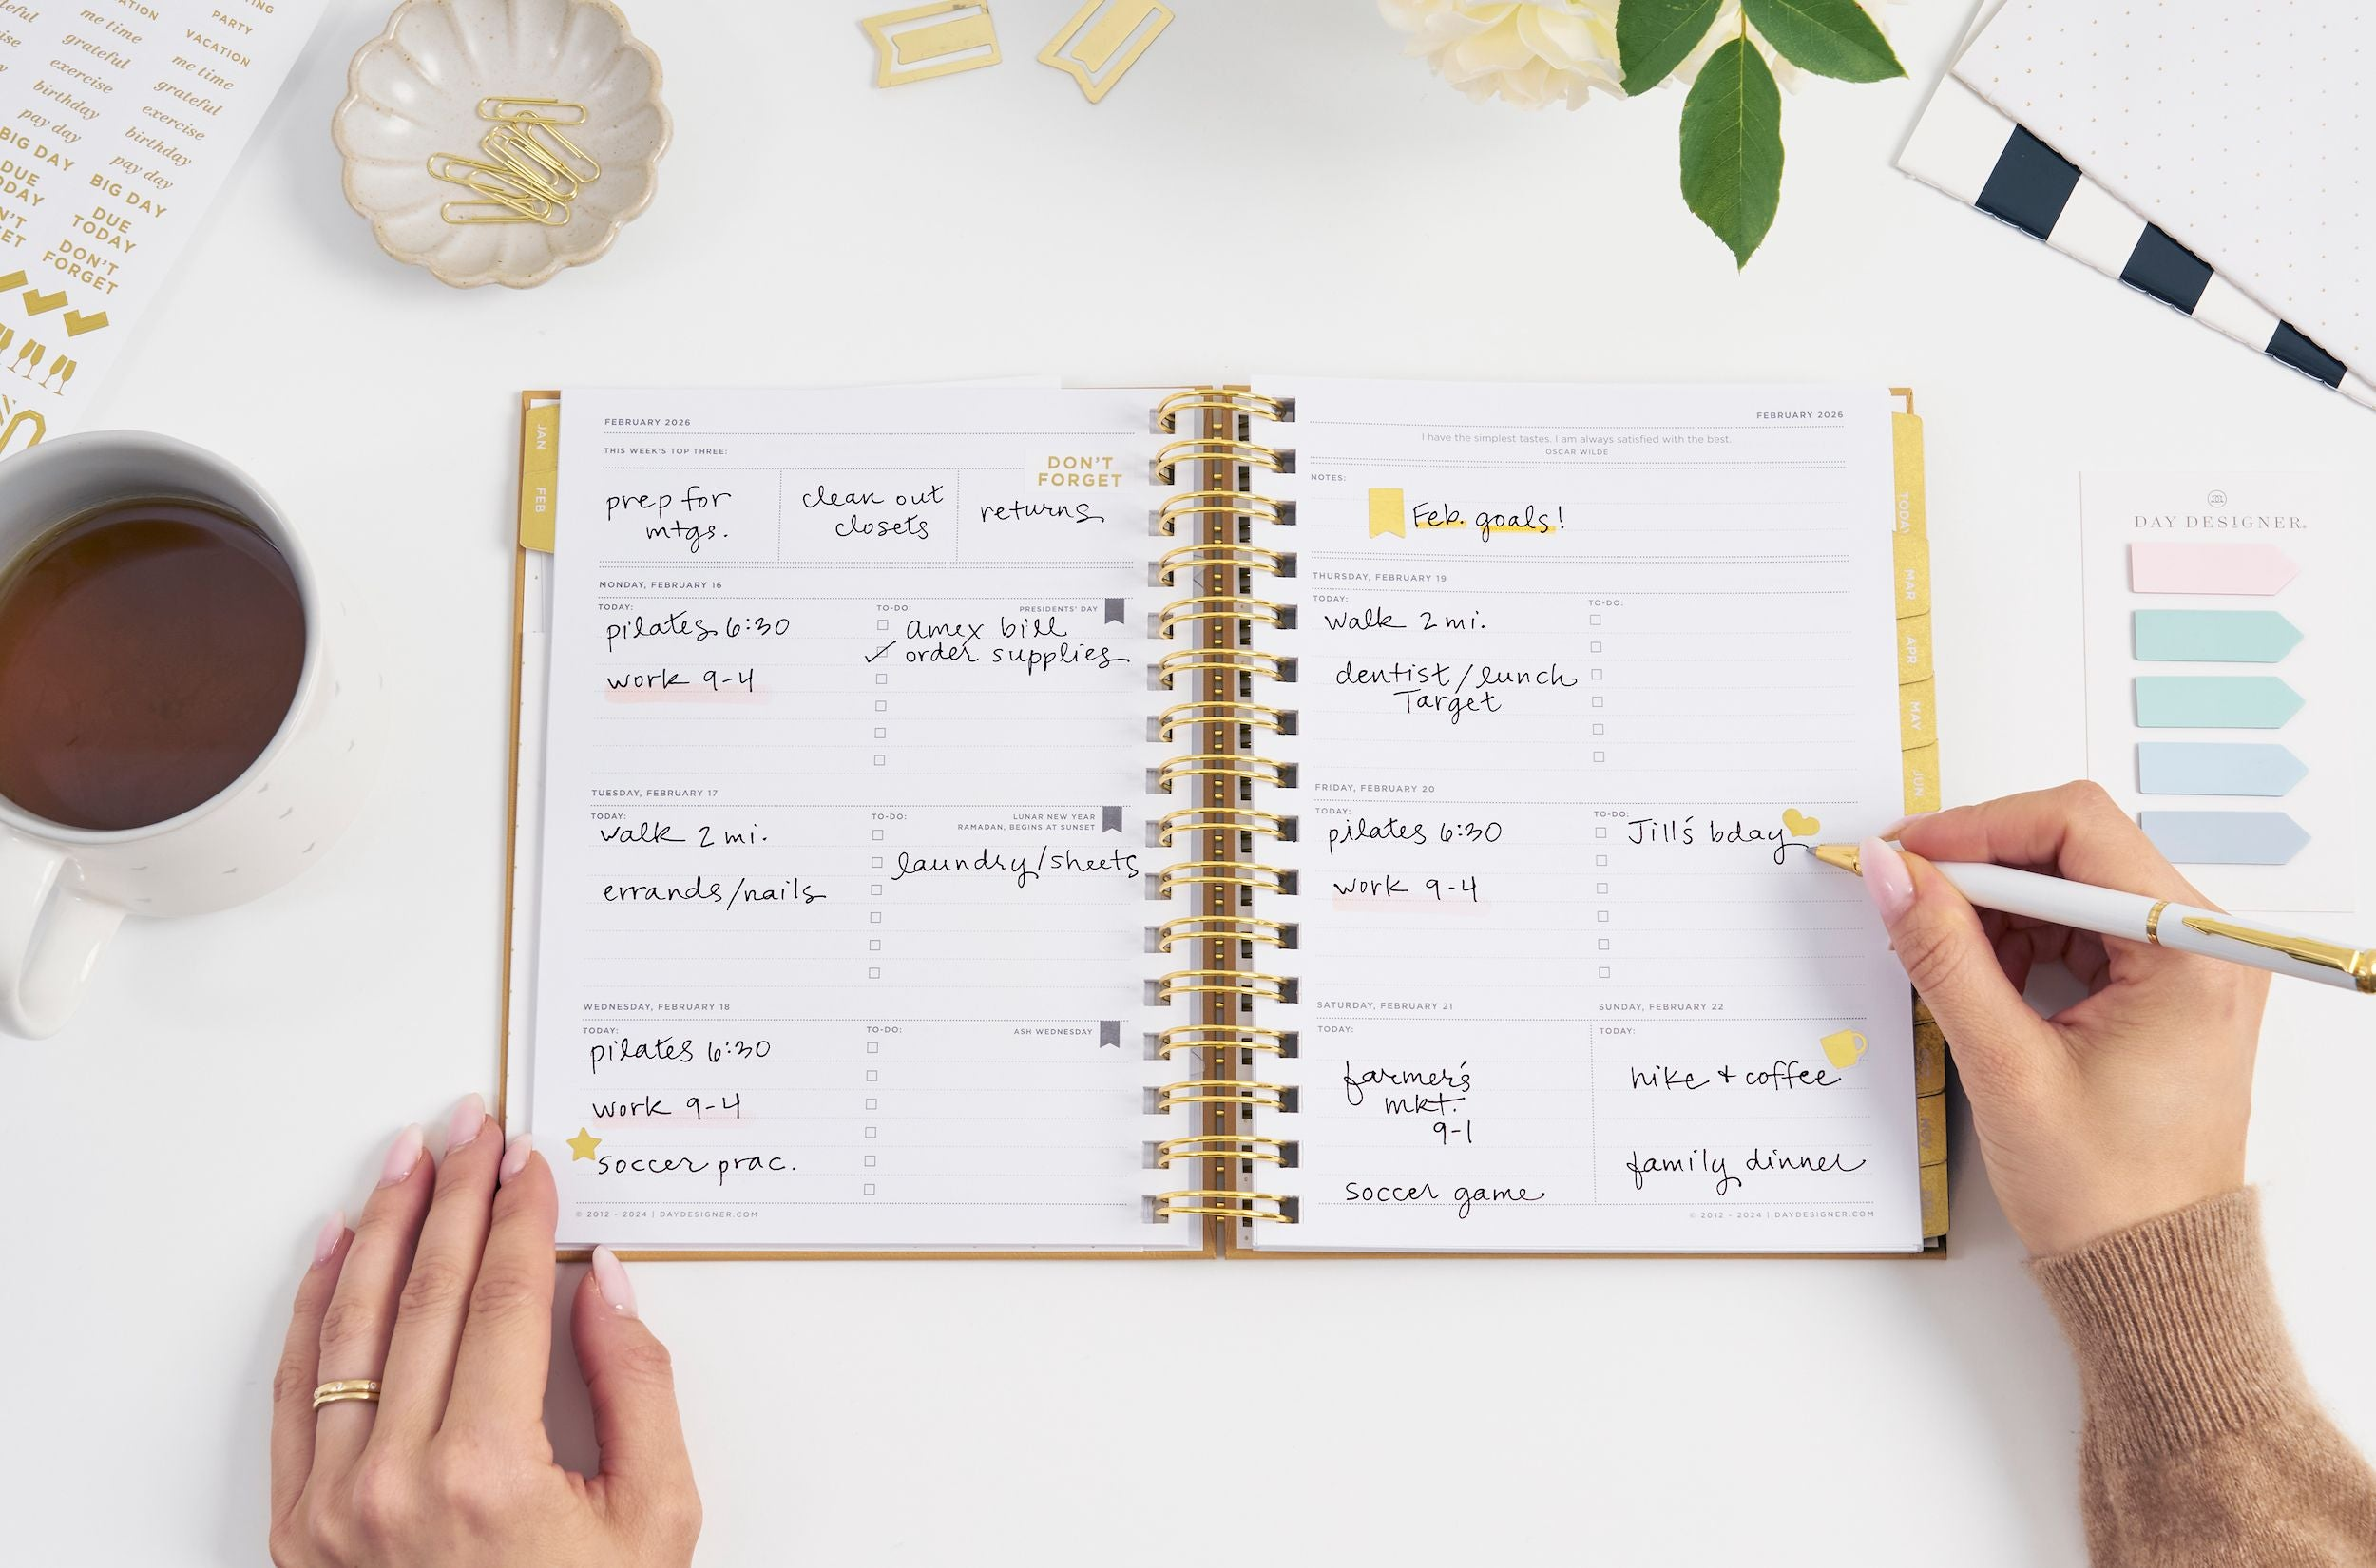 PARTY
VACATION
me time
grateful
exercise
birthday
pay day
BIG DAY
DUE
TODAY
DON'T
FORGET
me time
grateful
exercise
birthday
pay day
BIG DAY
DUE
TODAY
DON'T
FORGET
JAN
FEB
FEBRUARY 2026
THIS WEEK'S TOP THREE:
DON'T
FORGET
prep for
mtgs.
clean out
closets
returns
MONDAY, FEBRUARY 16
TODAY:
TO-DO:
PRESIDENTS' DAY
pilates 6:30
amex bill
order supplies
work 9-4
TUESDAY, FEBRUARY 17
TODAY:
TO-DO:
LUNAR NEW YEAR
RAMADAN, BEGINS AT SUNSET
walk 2 mi.
laundry/sheets
errands/nails
WEDNESDAY, FEBRUARY 18
TODAY:
TO-DO:
ASH WEDNESDAY
pilates 6:30
work 9-4
soccer prac.
© 2012 - 2024 | DAYDESIGNER.COM
FEBRUARY 2026
I have the simplest tastes. I am always satisfied with the best.
OSCAR WILDE
NOTES:
Feb. goals!
THURSDAY, FEBRUARY 19
TODAY:
TO-DO:
walk 2 mi.
dentist/lunch
Target
FRIDAY, FEBRUARY 20
TODAY:
TO-DO:
pilates 6:30
Jill's bday
work 9-4
SATURDAY, FEBRUARY 21
TODAY:
farmer's
mkt.
9-1
soccer game
SUNDAY, FEBRUARY 22
TODAY:
hike + coffee
family dinner
© 2012 - 2024 | DAYDESIGNER.COM
TODAY
MAR
APR
MAY
JUN
DAY DESIGNER